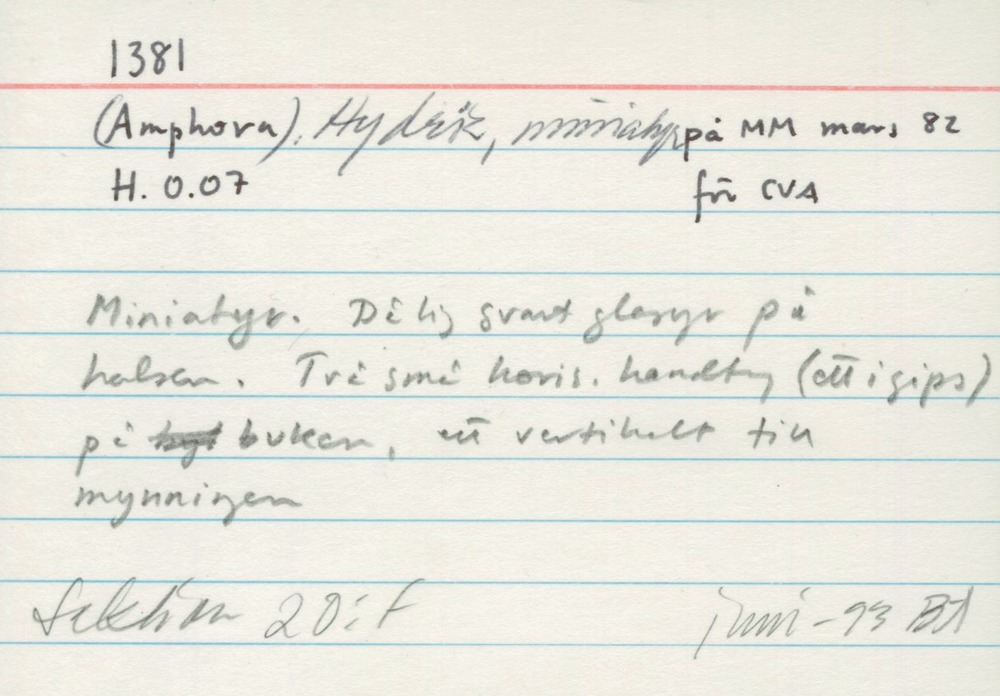 1381
(Amphora). Hydria, miniatyr på MM mars 82
H. 0.07 för CVA
Miniatyr. Dålig svart glasyr på
halsen. Två små horis. handtag (ett i gips)
på buken, ett vertikalt till
mynningen
Sektion 20:F
juni -93